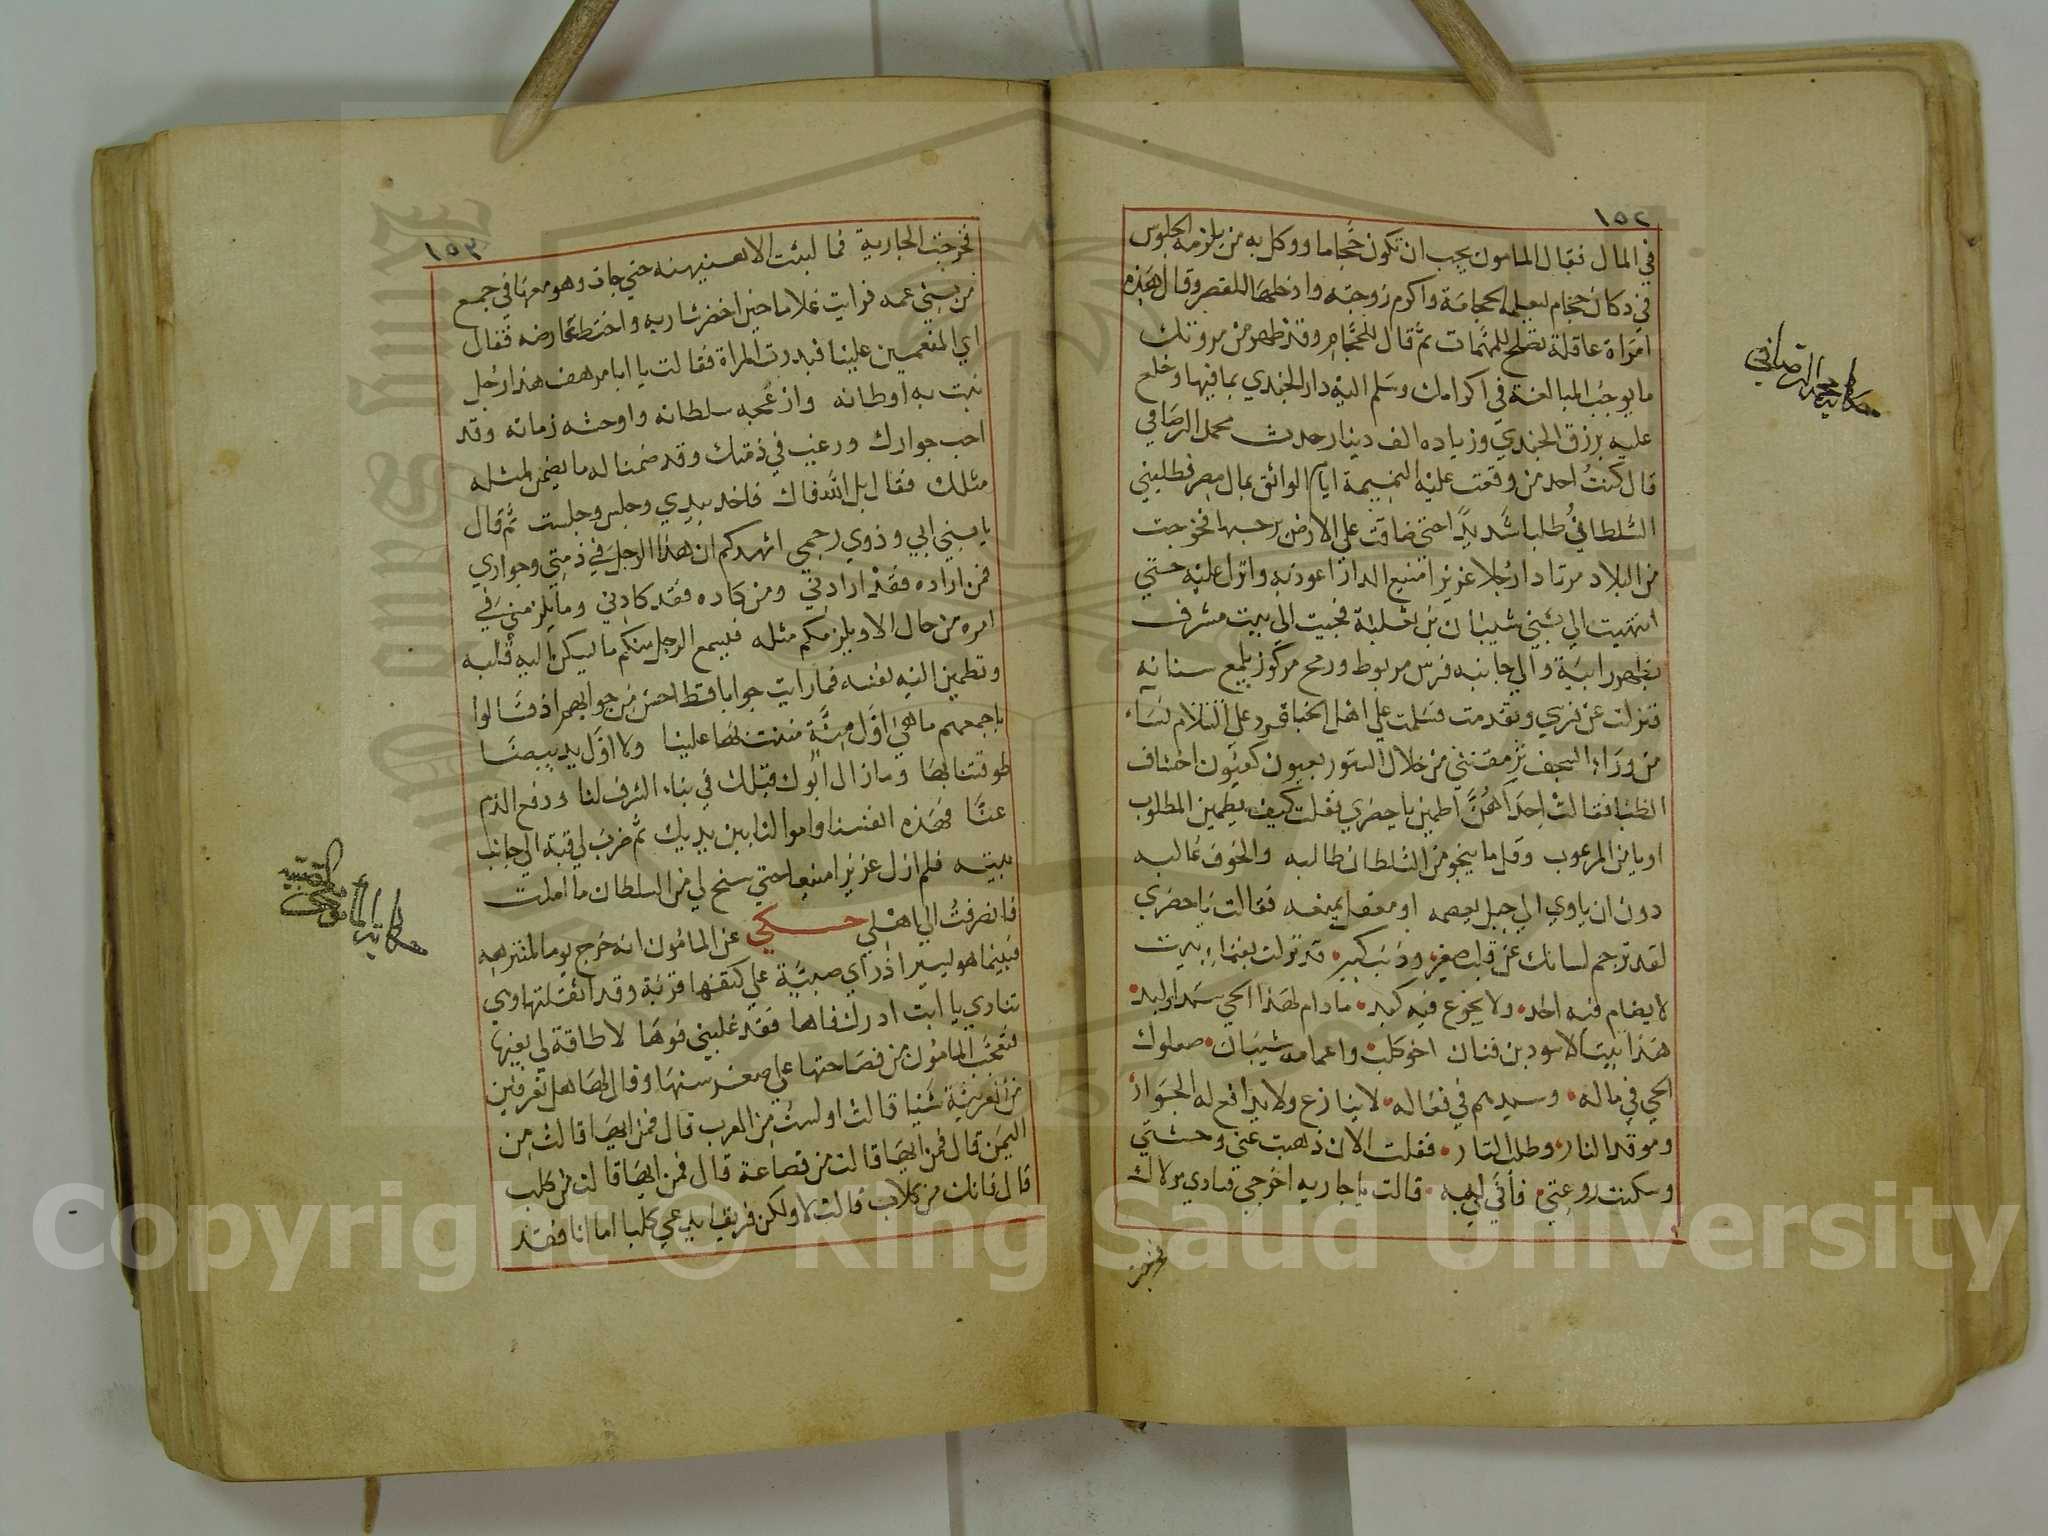 ١٥٢
في المال فقال المامون يجب ان تكون حجاما ووكل به من يلزمه الجلوس
في دكان حجام ليعلمه الحجامة واكرم زوجته وادخلها للقصر وقال هذه
امراة عاقلة تصلح للمهمات ثم قال للحجام وقد ظهر من مروتك
ما يوجب المبالغة في اكرامك وسلم اليه دار الجندي بما فيها وخلع
عليه برزق الجندي وزياده الف دينار حدث محمد الرصافي
قال كنت احد من وقعت عليه النميمة ايام الواثق بمال مصر فطلبني
السلطان طلبا شديدا حتى ضاقت علي الارض برحبها فخرجت
من البلاد مرتادا رجلا عزيزا منيع الدار اعوذ به وانزل عليه حتي
انتهيت الي بني شيبان بن ثعلبة فجيت الي بيت مشرف
بظهر رابية والي جانبه فرس مربوط ورمح مركوز يلمع سنانه
فنزلت عن فرسي وتقدمت فسلمت علي اهل الخبا فرد علي السلام نساء
من وراء السجف يرمقنني من خلال الستور بعيون كعيون اخشاف
الظبا فقالت احداهن اطمين يا حضري فقلت كيف يطمين المطلوب
او يامن المرعوب وقل ما ينجو من السلطان طالبه والخوف غالبه
دون ان ياوي الي جبل يعصمه او معقل يمنعه فقالت يا حضري
لقد ترجم لسانك عن قلب صغير وذنب كبير قد نزلت بفناء بيت
لا يضام فيه احد ولا يجوع فيه كبد مادام لهذا الحي سبد او لبد
هذا بيت الاسود بن قنان اخو كلب واعمامه شيبان صعلوك
الحي في ماله وسيدهم في فعاله لا ينازع ولا يدافع له الجوار
وموقد النار وطلب الثار فقلت الان ذهبت عني وحشتي
وسكنت روعتي فاني لي به قالت يا جاريه اخرجي فنادي مولاك
فخرجت
حكاية محمد الرصافي
١٥٣
فخرجت الجارية فما لبثت الا هنيهنه حتي جات وهو معها في جمع
من بني عمه فرايت غلاما حين اخضر شاربه واختط عارضه فقال
اي المنعمين علينا فبدرت المراة فقالت يا ابا مرهف هذا رجل
نبت به اوطانه وازعجه سلطانه واوحشه زمانه وقد
احب جوارك ورغب في ذمتك وقد ضمنا له ما يضمن لمثله
مثلك فقال بل الله فاك فاخد بيدي وجلس وجلست ثم قال
يا بني ابي وذوي رحمي اشهدكم ان هذا الرجل في ذمتي وجواري
فمن اراده فقد ارادني ومن كاده فقد كادني وما يلزمني في
امره من حال الا ويلزمكم مثله فليسمع الرجل منكم ما ليسكن اليه قلبه
وتطمين اليه نفسه فما رايت جوابا قط احسن من جوابهم اذ قالوا
باجمعهم ما هي اول منة مننت بها علينا ولا اول يد بيضا
طوقتنا بها ومازال ابوك قبلك في بناء الشرف لنا ودفع الذم
عنا فهذه انفسنا واموالنا بين يديك ثم ضرب لي قبة الي جانب
بيته فلم ازل عزيزا منيعا حتي سنح لي من السلطان ما املت
فانصرفت الي اهلي حكي عن المامون انه خرج يوما لمتنزهه
فبينما هو يسير اذ راي صبية علي كتفها قربة وقد اثقلتها وهي
تنادي يا ابت ادرك فاها فقد غلبني فوها لا طاقة لي بفيها
فتعجب المامون من فصاحتها علي صغر سنها وقال لها هل تعرفين
من العربية شيا قالت اولست من العرب قال فمن ايها قالت من
اليمن قال فمن ايها قالت من قضاعة قال فمن ايها قالت من كلب
قال فانك من كلاب قالت لا ولكن فريقا يدعي كلبا اما انا فقد
حكاية المامون